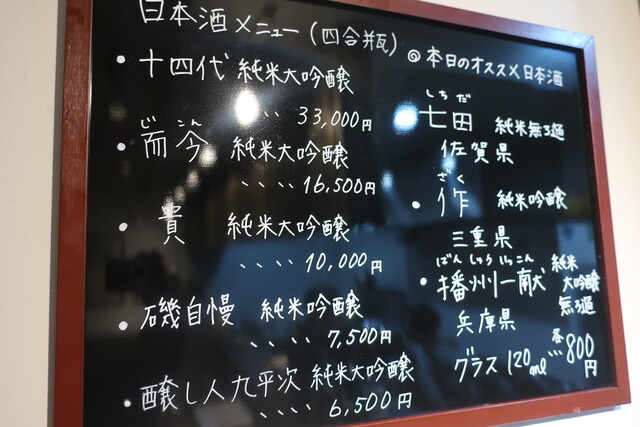 日本酒メニュー(四合瓶)
・十四代 純米大吟醸
、、、33,000円
じ こん
・而今 純米大吟醸
、、、、16,500円
・貴 純米大吟醸
、、、、10,000円
・磯自慢 純米吟醸
、、、、7,500円
・醸し人九平次 純米大吟醸
、、、、6,500円
◎本日のオススメ日本酒
しち だ
・七田 純米無ろ過
佐賀県
ざく
・作 純米吟醸
三重県
ばんしゅう いっこん
・播州一献 純米
大吟醸
無ろ過
兵庫県
グラス120ml 各…800円